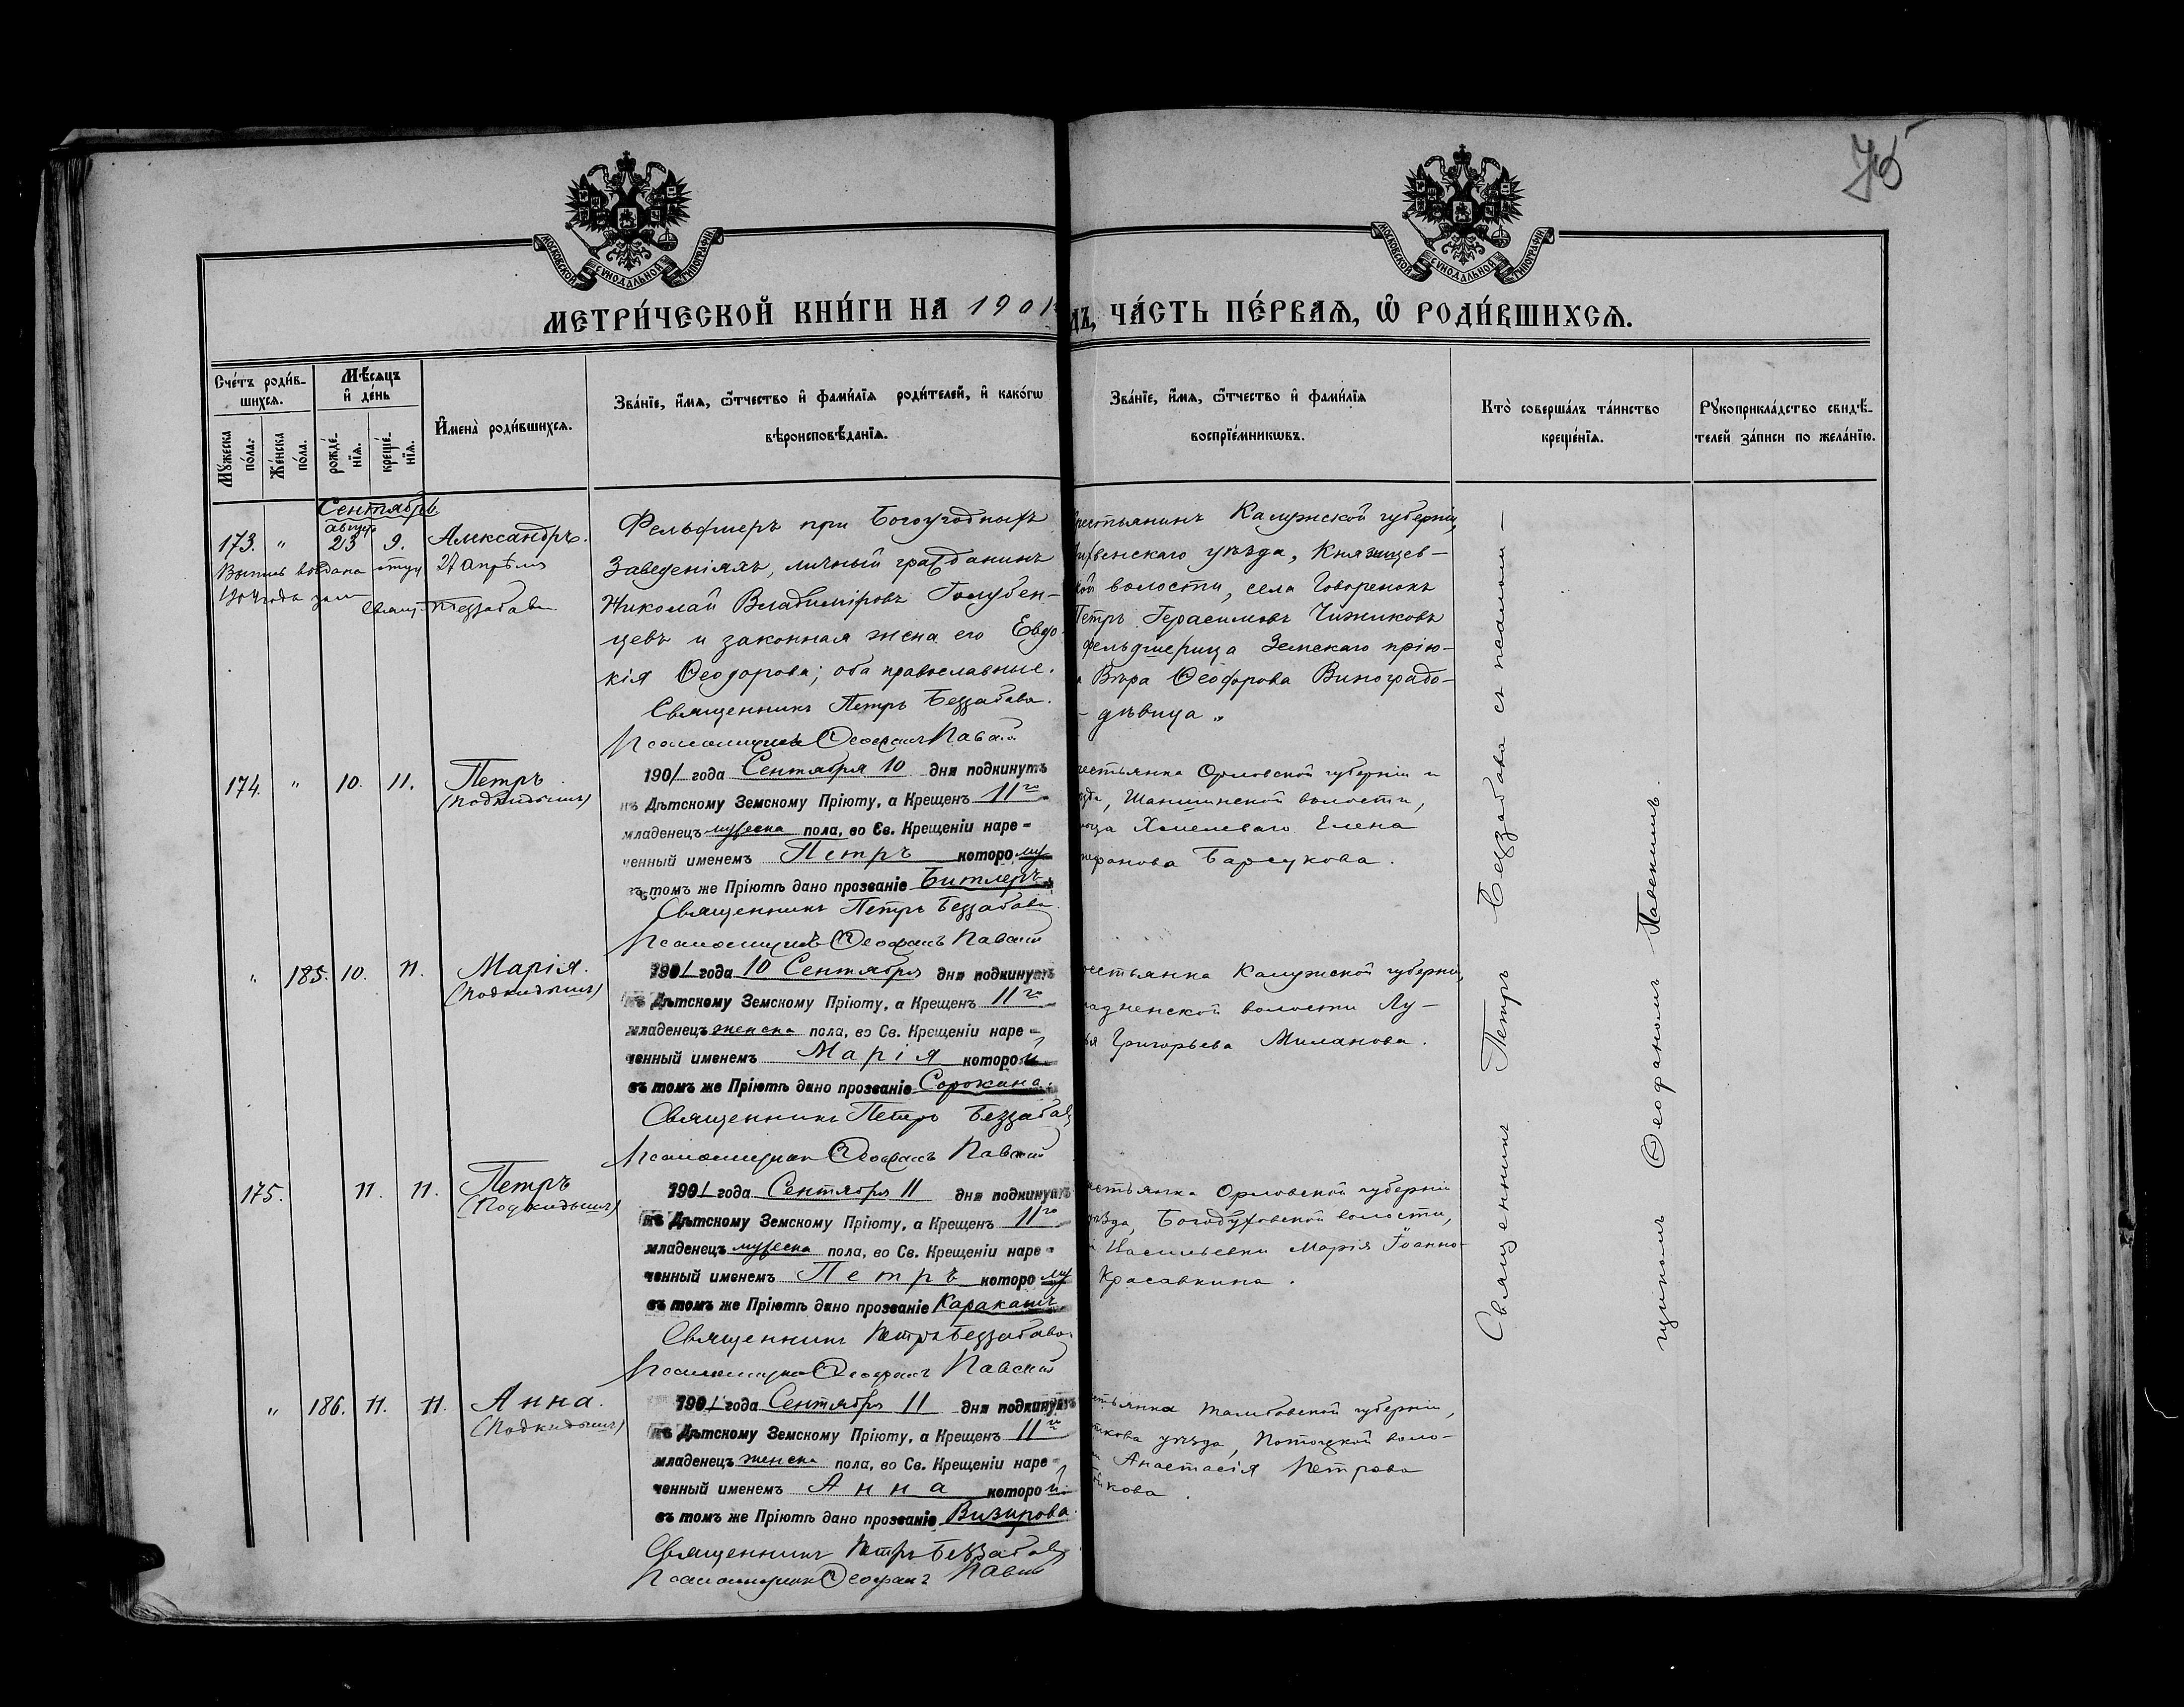 75
МОСКОВСКОЙ СѴНОДАЛЬНОЙ ТИПОГРАФІИ
МОСКОВСКОЙ СѴНОДАЛЬНОЙ ТИПОГРАФІИ
МЕТРИ́ЧЕСКОЙ КНИ́ГИ НА 1901 ДЪ, ЧА́СТЬ ПЕ́РВАѦ, Ѡ҆ РОДИ́ВШИХСѦ.
Сче́тъ роди́в-
шихсѧ.
Мꙋ́жеска
по́ла.
Же́нска
по́ла.
Мѣ́сѧцъ
и҆ де́нь
рожде́-
нїѧ.
креще́-
нїѧ.
И҆мена̀ роди́вшихсѧ.
Зва́нїе, и҆́мѧ, ѻ҆́тчество и҆ фами́лїѧ роди́телей, и҆ како́гѡ
вѣроисповѣ́данїѧ.
Зва́нїе, и҆́мѧ, ѻ҆́тчество и҆ фами́лїѧ
воспрїе́мникѡвъ.
Кто̀ соверша́лъ та́инство
креще́нїѧ.
Рꙋкоприкла́дство свидѣ́-
телей за́писи по жела́нїю.
Сентябрь
август
173. " 23 9. Александръ.
27 апрѣля
1904 года
Фельдшеръ при Богоугодныхъ
Заведеніяхъ, личный гражданинъ
Николай Владиміровъ Голубен-
цевъ и законная жена его Евдо-
кія Ѳеодорова; оба православные.
Священникъ Петръ Беззабава.
Псаломщикъ Ѳеофанъ Павскій
крестьянинъ Калужской губерніи,
уѣзда,
кой волости, села Говоренокъ
Петръ Герасимовъ Чижиковъ
фельдшерица Земскаго прію-
Вѣра Ѳеодорова Виноградо-
дѣвица.
174. " 10. 11. Петръ
(подкидышъ)
1901 года Сентября 10 дня подкинутъ
къ Дѣтскому Земскому Пріюту, а Крещенъ 11го
младенецъ мужеска пола, во Св. Крещеніи наре-
ченный именемъ Петръ которому
въ томъ же Пріютѣ дано прозваніе Битлеръ.
Священникъ Петръ Беззабава
Псаломщикъ Ѳеофанъ Павскій
рестьянка Орловской губерніи и
волости,
Елена
Барсукова.
" 185. 10. 11. Марія.
(подкидышъ)
1901 года 10 Сентября дня подкинутъ
къ Дѣтскому Земскому Пріюту, а Крещенъ 11го
младенецъ женска пола, во Св. Крещеніи наре-
ченный именемъ Марія которой
въ томъ же Пріютѣ дано прозваніе Сорокина.
Священникъ Петръ Беззабава
Псаломщикъ Ѳеофанъ Павскій
рестьянка Калужской губерніи,
волости Лу-
Григорьева Миланова.
175. 11. 11. Петръ
(Подкидышъ)
1901 года Сентября 11 дня подкинутъ
къ Дѣтскому Земскому Пріюту, а Крещенъ 11го
младенецъ мужеска пола, во Св. Крещеніи наре-
ченный именемъ Петръ которому
въ томъ же Пріютѣ дано прозваніе Каракашъ
Священникъ Петръ Беззабава
Псаломщикъ Ѳеофанъ Павскій
естьянка Орловской губерніи
уѣзда, Богодуховской волости,
Васильевки Марія Іоанно-
Красавкина.
" 186. 11. 11. Анна.
(Подкидышъ)
1901 года Сентября 11 дня подкинутъ
къ Дѣтскому Земскому Пріюту, а Крещенъ 11го
младенецъ женска пола, во Св. Крещеніи наре-
ченный именемъ Анна которой
въ томъ же Пріютѣ дано прозваніе Визирова.
Священникъ Петръ Беззабава
Псаломщикъ Ѳеофанъ Павскій
естьянка Тамбовской губерніи,
уѣзда, воло-
Анастасія Петрова
Священникъ Петръ Беззабава съ псалом-
щикомъ Ѳеофаномъ Павскимъ.